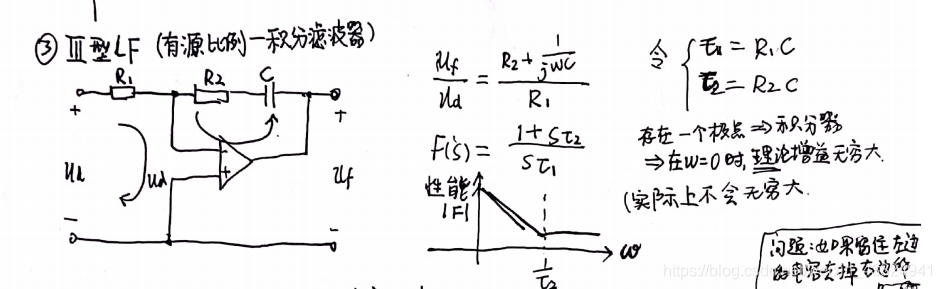 ③ Ⅲ型LF (有源比例-积分滤波器)
R₁ R₂ C
+ +
Ud Ud Uf
- +
- -
Uf/Ud = (R₂ + 1/jωC)/R₁
F(s) = (1+Sτ₂)/(Sτ₁)
性能
|F|
ω
1/τ₂
令 { τ₁ = R₁C
τ₂ = R₂C
存在一个极点 ⇒ 积分器
⇒ 在W=0时, 理论增益无穷大.
(实际上不会无穷大.
问题: 如果留住左边
的电容去掉右边的
https://blog.csd